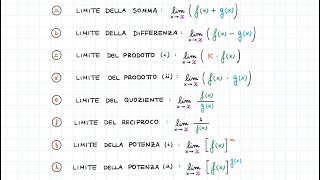 a LIMITE DELLA SOMMA : lim x→x ( f(x) + g(x) )
b LIMITE DELLA DIFFERENZA : lim x→x ( f(x) - g(x) )
c LIMITE DEL PRODOTTO (i) : lim x→x ( K · f(x) )
d LIMITE DEL PRODOTTO (ii) : lim x→x ( f(x) · g(x) )
e LIMITE DEL QUOZIENTE : lim x→x f(x) / g(x)
f LIMITE DEL RECIPROCO : lim x→x 1 / f(x)
g LIMITE DELLA POTENZA (i) : lim x→x [ f(x) ]
h LIMITE DELLA POTENZA (ii) : lim x→x [ f(x) ]^g(x)